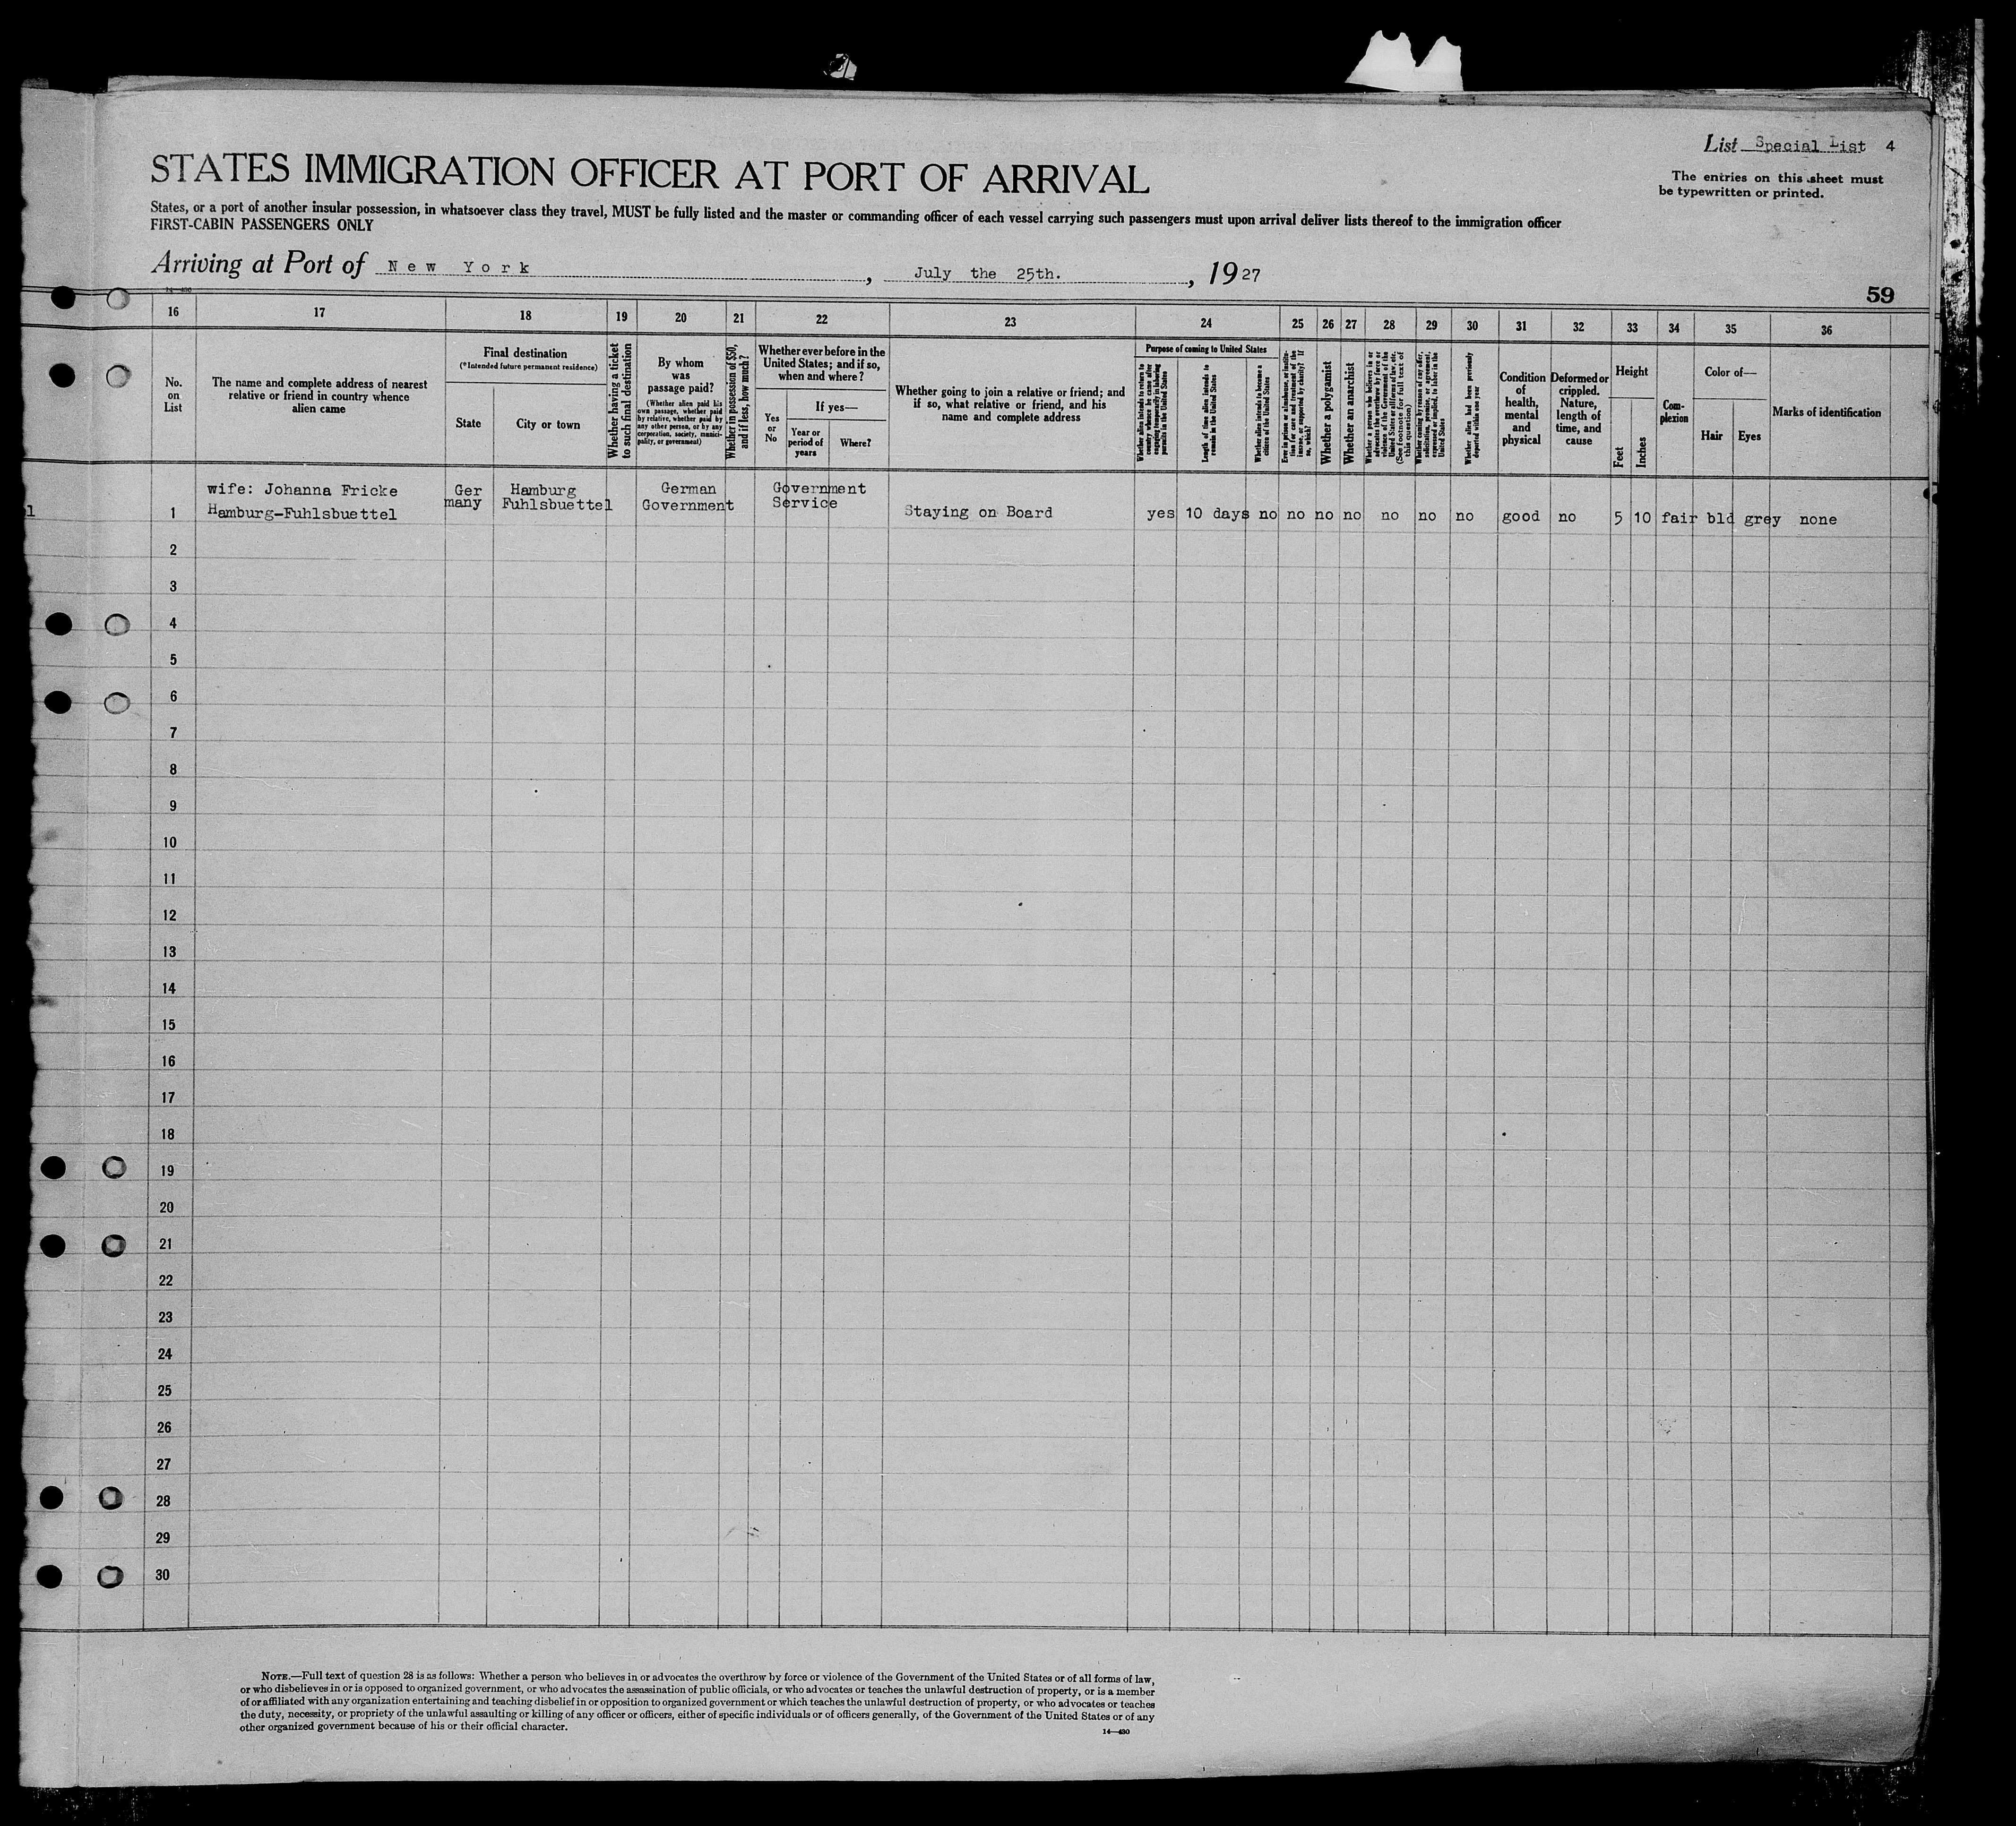 List Special List 4
The entries on this sheet must
be typewritten or printed.
STATES IMMIGRATION OFFICER AT PORT OF ARRIVAL
States, or a port of another insular possession, in whatsoever class they travel, MUST be fully listed and the master or commanding officer of each vessel carrying such passengers must upon arrival deliver lists thereof to the immigration officer
FIRST-CABIN PASSENGERS ONLY
Arriving at Port of New York, July the 25th., 1927
14-430
59
16 17 18 19 20 21 22 23 24 25 26 27 28 29 30 31 32 33 34 35 36
No.
on
List
The name and complete address of nearest
relative or friend in country whence
alien came
Final destination
(*Intended future permanent residence)
State
City or town
Whether having a ticket
to such final destination
By whom
was
passage paid?
(Whether alien paid his
own passage, whether paid
by relative, whether paid by
any other person, or by any
corporation, society, munici-
pality, or government)
Whether in possession of $50,
and if less, how much?
Whether ever before in the
United States; and if so,
when and where?
Yes
or
No
If yes—
Year or
period of
years
Where?
Whether going to join a relative or friend; and
if so, what relative or friend, and his
name and complete address
Purpose of coming to United States
Whether alien intends to return to
country whence he came after
engaging temporarily in laboring
pursuits in the United States
Length of time alien intends to
remain in the United States
Whether alien intends to become a
citizen of the United States
Ever in prison or almshouse, or institu-
tion for care and treatment of the
insane, or supported by charity? If
so, which?
Whether a polygamist
Whether an anarchist
Whether a person who believes in or
advocates the overthrow by force or
violence of the Government of the
United States or all forms of law, etc.
(See footnote for full text of
this question)
Whether coming by reason of any offer,
solicitation, promise, or agreement,
expressed or implied, to labor in the
United States
Whether alien had been previously
deported within one year
Condition
of
health,
mental
and
physical
Deformed or
crippled.
Nature,
length of
time, and
cause
Height
Feet
Inches
Com-
plexion
Color of—
Hair
Eyes
Marks of identification
wife: Johanna Fricke Ger Hamburg German Government
many Fuhlsbuettel Government Service
1 Hamburg-Fuhlsbuettel Staying on Board yes 10 days no no no no no no no good no 5 10 fair bld grey none
2
3
4
5
6
7
8
9
10
11
12
13
14
15
16
17
18
19
20
21
22
23
24
25
26
27
28
29
30
NOTE.—Full text of question 28 is as follows: Whether a person who believes in or advocates the overthrow by force or violence of the Government of the United States or of all forms of law,
or who disbelieves in or is opposed to organized government, or who advocates the assassination of public officials, or who advocates or teaches the unlawful destruction of property, or is a member
of or affiliated with any organization entertaining and teaching disbelief in or opposition to organized government or which teaches the unlawful destruction of property, or who advocates or teaches
the duty, necessity, or propriety of the unlawful assaulting or killing of any officer or officers, either of specific individuals or of officers generally, of the Government of the United States or of any
other organized government because of his or their official character.
14—430